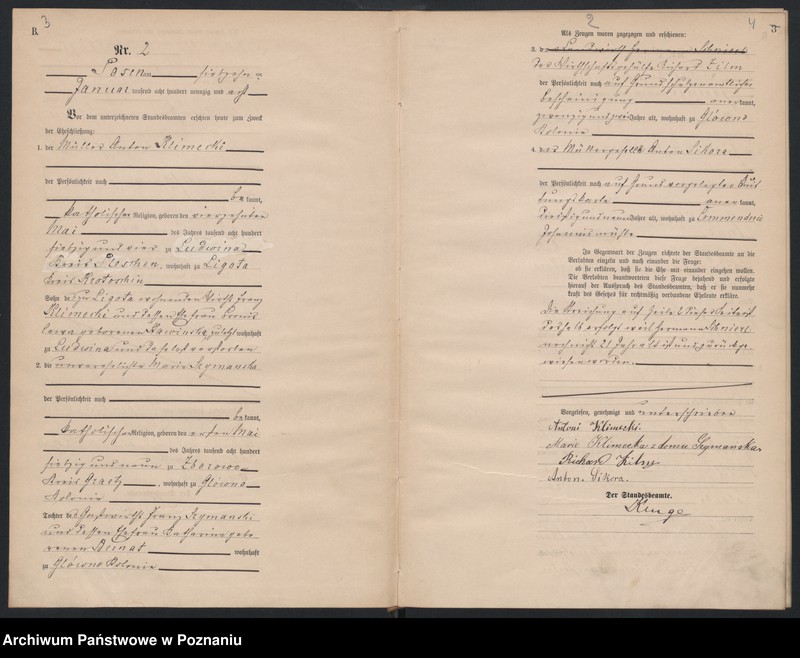 3
B.
Nr. 2
Posen am siebzehn ten
Januar tausend acht hundert neunzig und acht
Vor dem unterzeichneten Standesbeamten erschien heute zum Zweck
der Eheschließung:
1. der Müller Anton Klimecki
der Persönlichkeit nach
be kannt,
katholischer Religion, geboren den vierzehnten
Mai des Jahres tausend acht hundert
siebzig und vier zu Ludwina
Kreis Pleschen, wohnhaft zu Ligota
Kreis Krotoschin
Sohn des zu Ligota wohnenden Wirths Franz
Klimecki und dessen Ehefrau
geborenen zuletzt wohnhaft
zu Ludwina und daselbst verstorben
2. die unverehelichte Marie Szymanska
der Persönlichkeit nach
be kannt,
katholischer Religion, geboren den ersten Mai
des Jahres tausend acht hundert
siebzig und neun zu Zborowo
Kreis Graetz, wohnhaft zu Glówno
Kolonie
Tochter des Gastwirths Franz Szymanski
und dessen Ehefrau Katharina gebo
renen wohnhaft
zu Glówno Kolonie
2
4
3
Als Zeugen waren zugezogen und erschienen:
3. d
Der Wirthschaftsgehülfe Richard
der Persönlichkeit nach auf Grund
Bescheinigung aner kannt,
zwanzig und zwei Jahre alt, wohnhaft zu Glówno
Kolonie
4. der Müllergeselle Anton Sikora
der Persönlichkeit nach auf Grund vorgelegter Quit
tungskarte aner kannt,
dreißig und neun Jahre alt, wohnhaft zu Commenderie
Johannismühle
In Gegenwart der Zeugen richtete der Standesbeamte an die
Verlobten einzeln und nach einander die Frage:
ob sie erklären, daß sie die Ehe mit einander eingehen wollen.
Die Verlobten beantworteten diese Frage bejahend und erfolgte
hierauf der Ausspruch des Standesbeamten, daß er sie nunmehr
kraft des Gesetzes für rechtmäßig verbundene Eheleute erkläre.
Die Streichung auf Zeile 2 dieser Seite ist
deshalb erfolgt weil Hermann
noch nicht 21 Jahr alt ist und zurückge
wiesen worden.
Vorgelesen, genehmigt und unterschrieben
Antoni Klimecki.
Marie Klimecka z domu Szymanska
Richard
Anton Sikora.
Der Standesbeamte.
Archiwum Państwowe w Poznaniu